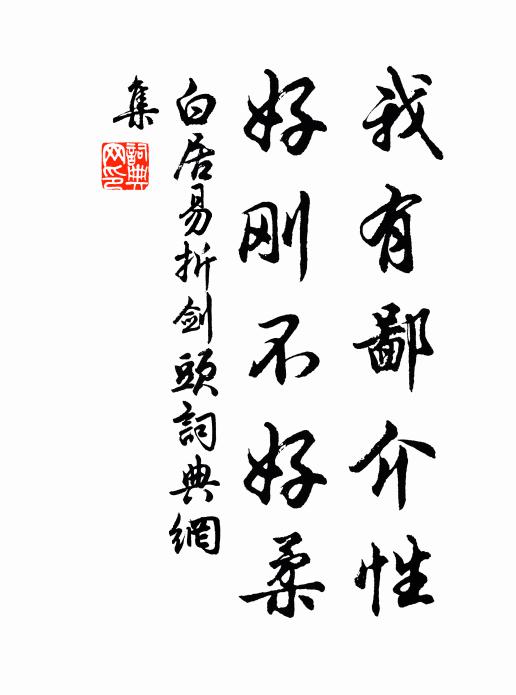 我有鄙介性
好刚不好柔
白居易折剑頭詞典網
集
詞典
网印